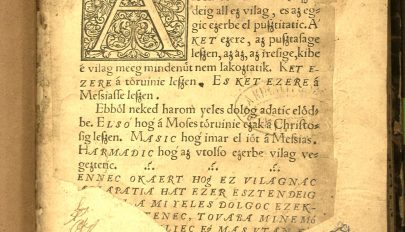 A
deig all eȝ vilag, es aȝ eg-
gic eȝerbe el puſtitatic. A
KET eȝere, aȝ puſztaſage
leſſen, aȝ, aȝ, ireſige, kibe
é vilag meeg mindenűt nem lakoȝtatik. KET E-
ZERE á tőruinie leſſen. ES KET EZERE á
Meſsiaſſe leſſen.
Ebből neked harom yeles dolog adatic előd-
be. ELSO hog á Moses tőruinie cȝak á Chriſto-
ſig leſſen. MASIC hog imar el iőt á Meſsias.
HARMADIC hog aȝ vtolſo eȝerbe vilag ve-
geȝetic.
ENNEC OKAERT HOG EZ VILAGNAC
APATIA HAT EZER ESTENDEIG
A MI YELES DOLGOC EZEK-
TENEC, TOVABA MINEMŐ
LIEC EZ MAS VTAN E